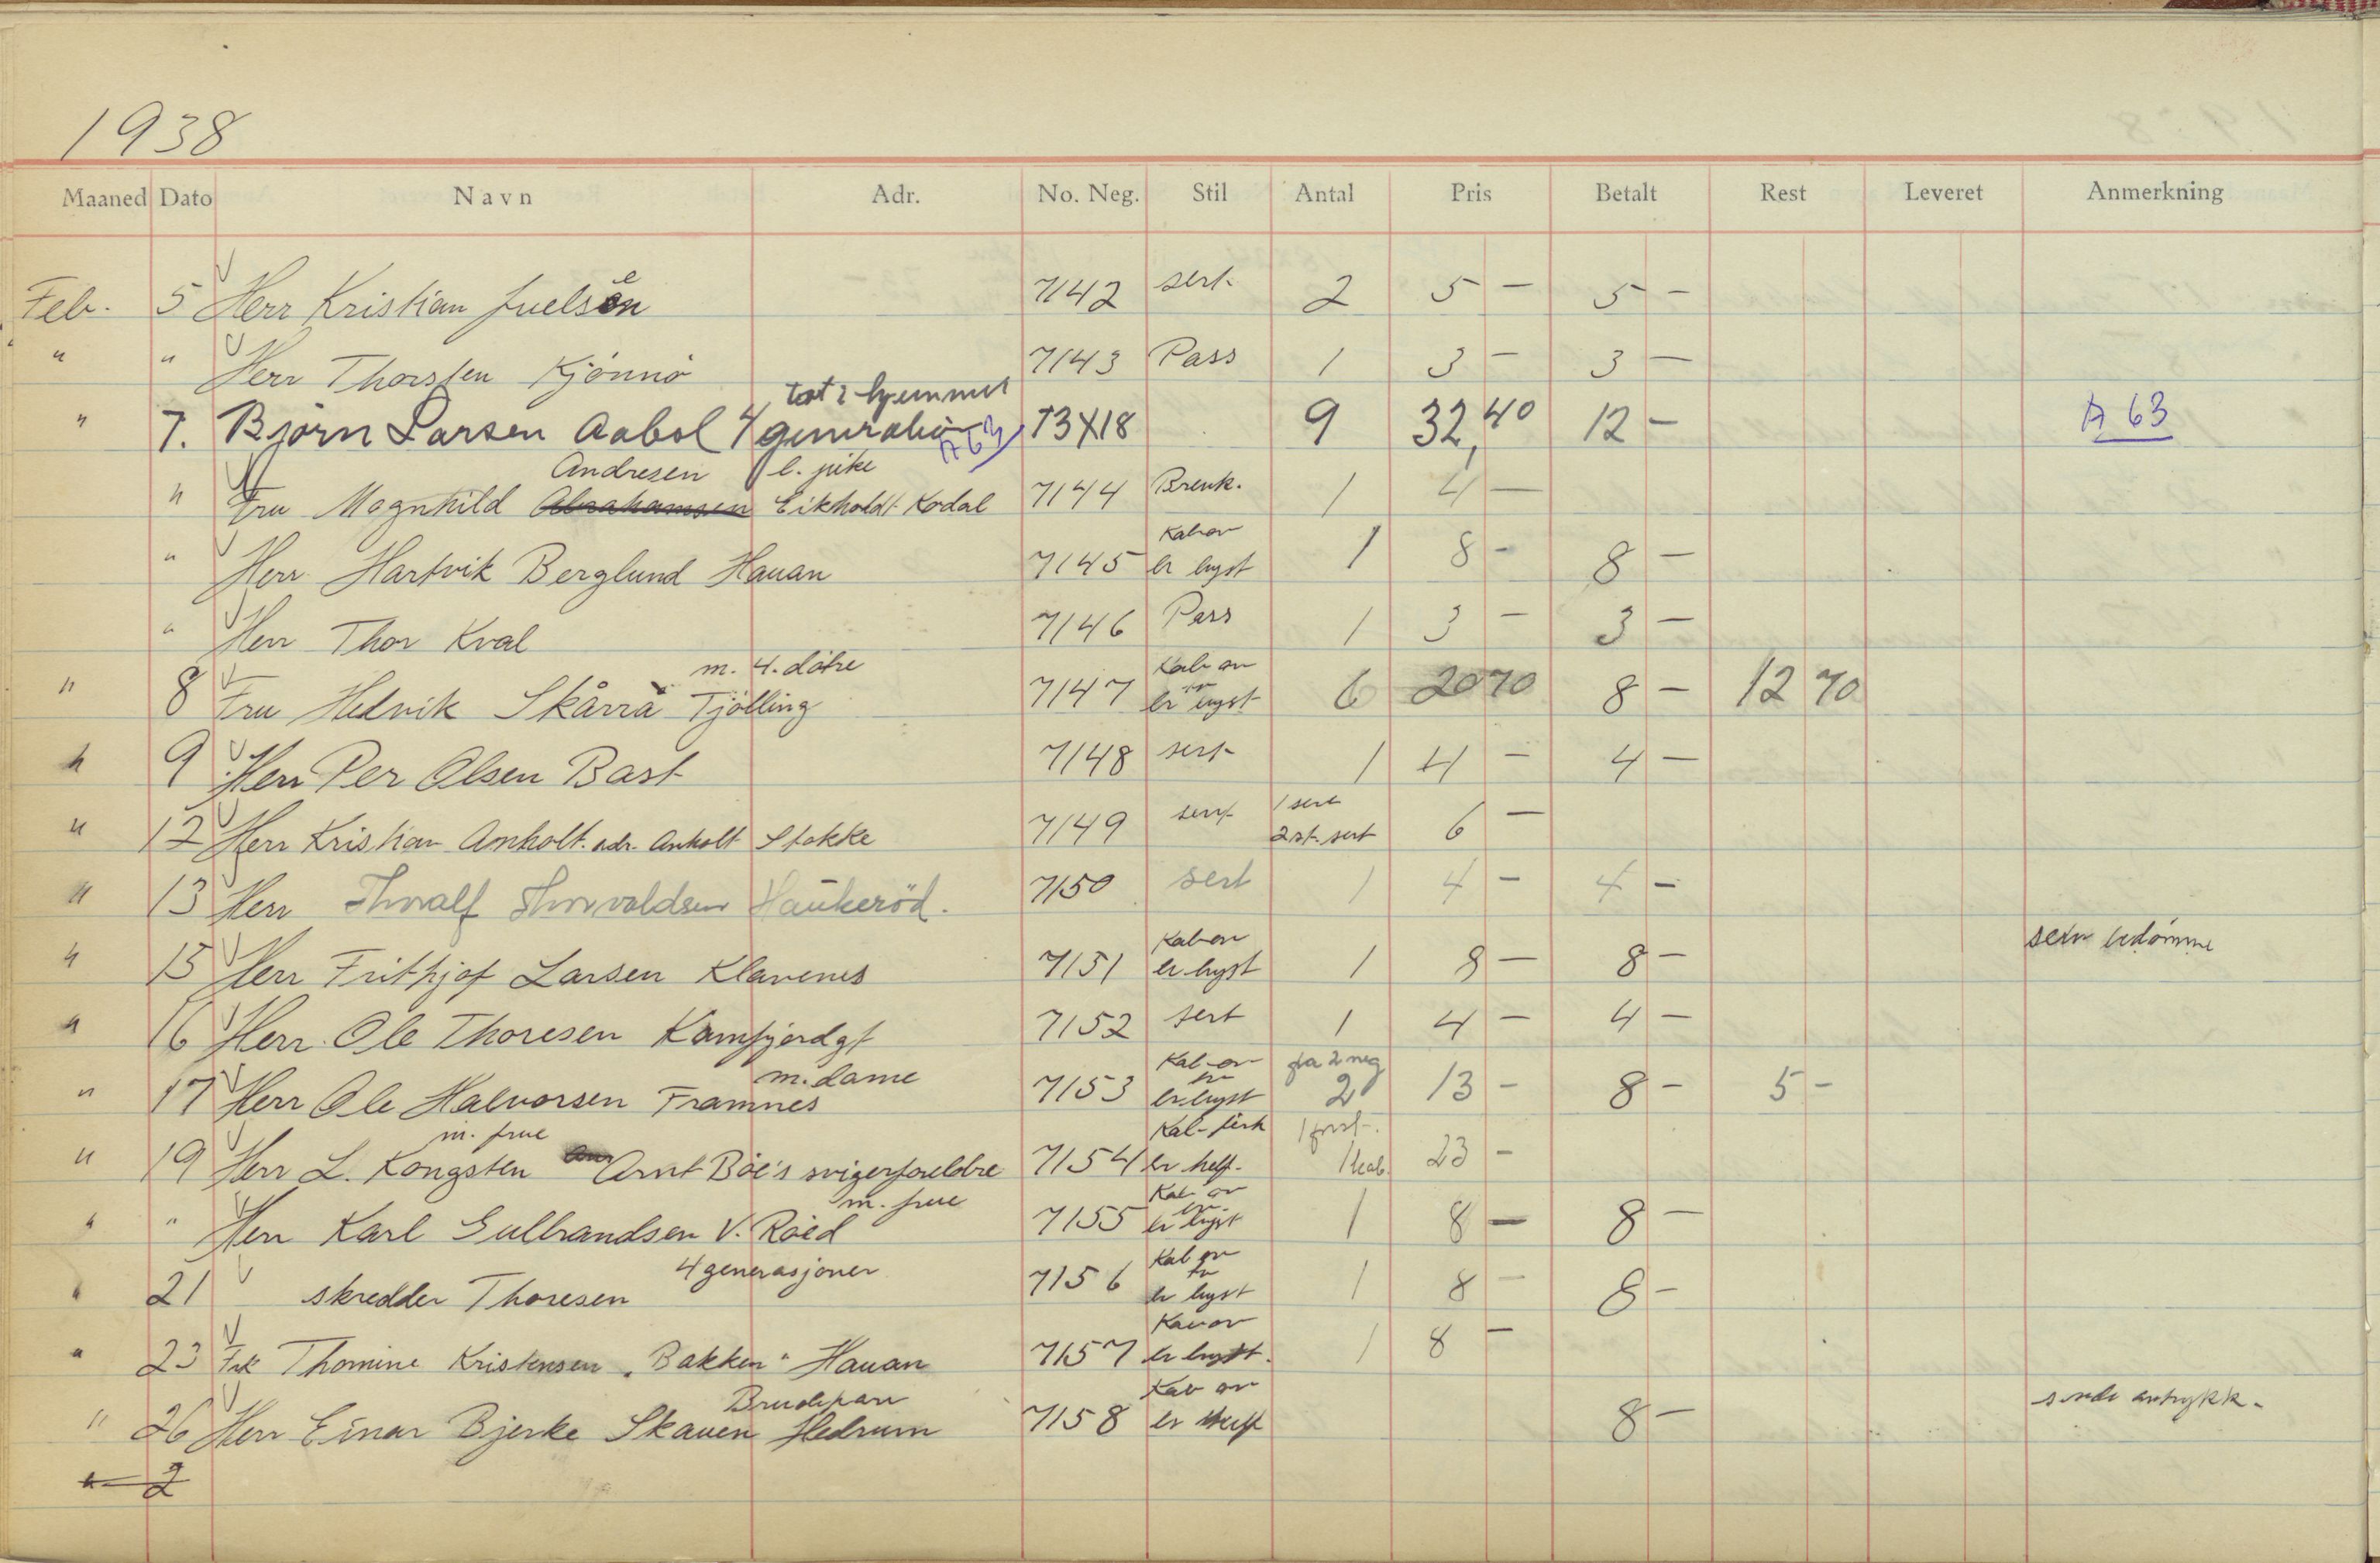 1938
Maaned Dato Navn Adr. No. Neg. Stil Antal Pris Betalt Rest Leveret Anmerkning
Feb. 5 Herr Kristian Juelsen 7142 sert. 2 5 - 5 -
" " Herr Thorsten Kjönnö 7143 Pass 1 3 - 3 -
tat i hjemmet
" 7. Björn Larsen Aabol 4 generation A 63 13X18 9 32,40 12 - A 63
Andresen l. pike
" Fru Magnhild Abrahamsen Eikholdt Kodal 7144 Brevk. 1 4 -
Kab av
" Herr Hartvik Berglund Hauan 7145 er lyst 1 8 - 8 -
" Herr Thor Kval 7146 Pass 1 3 - 3 -
m. 4. døtre Kab av
" 8 Fru Hedvik Skårra Tjölling 7147 er lyst 6 20 70 8 - 12 70
" 9 Herr Per Olsen Bast 7148 sert 1 4 - 4 -
1 sert
" 12 Herr Kristian Anholt. adr. Anholt Stokke 7149 sert 2 st. sert 6 -
" 13 Herr Thoralf Thorvaldsen Haukeröd. 7150 sert 1 4 - 4 -
Kab av
" 15 Herr Frithjof Larsen Klavenes 7151 er lyst 1 8 - 8 - bedömme
" 16 Herr Ole Thoresen Kamfjordgt 7152 sert 1 4 - 4 -
m. dame Kab av fra 2 neg
" 17 Herr Ole Halvorsen Framnes 7153 er lyst 2 13 - 8 - 5 -
m. frue Kab- 1
" 19 Herr L. Kongsten Arnt Böe's svigerforeldre 7154 er helf. 1 kab. 23 -
m. frue Kab av
" " Herr Karl Gulbrandsen V. Röed 7155 er lyst 1 8 - 8 -
4 generasjoner Kab av
" 21 skredder Thoresen 7156 er lyst 1 8 - 8 -
Kab av
" 23 Frk Thomine Kristensen "Bakken" Hauan 7157 er lyst. 1 8 -
Brudepar Kab av
" 26 Herr Einar Bjerke Skauen Hedrum 7158 er 8 - avtrykk.
" 2